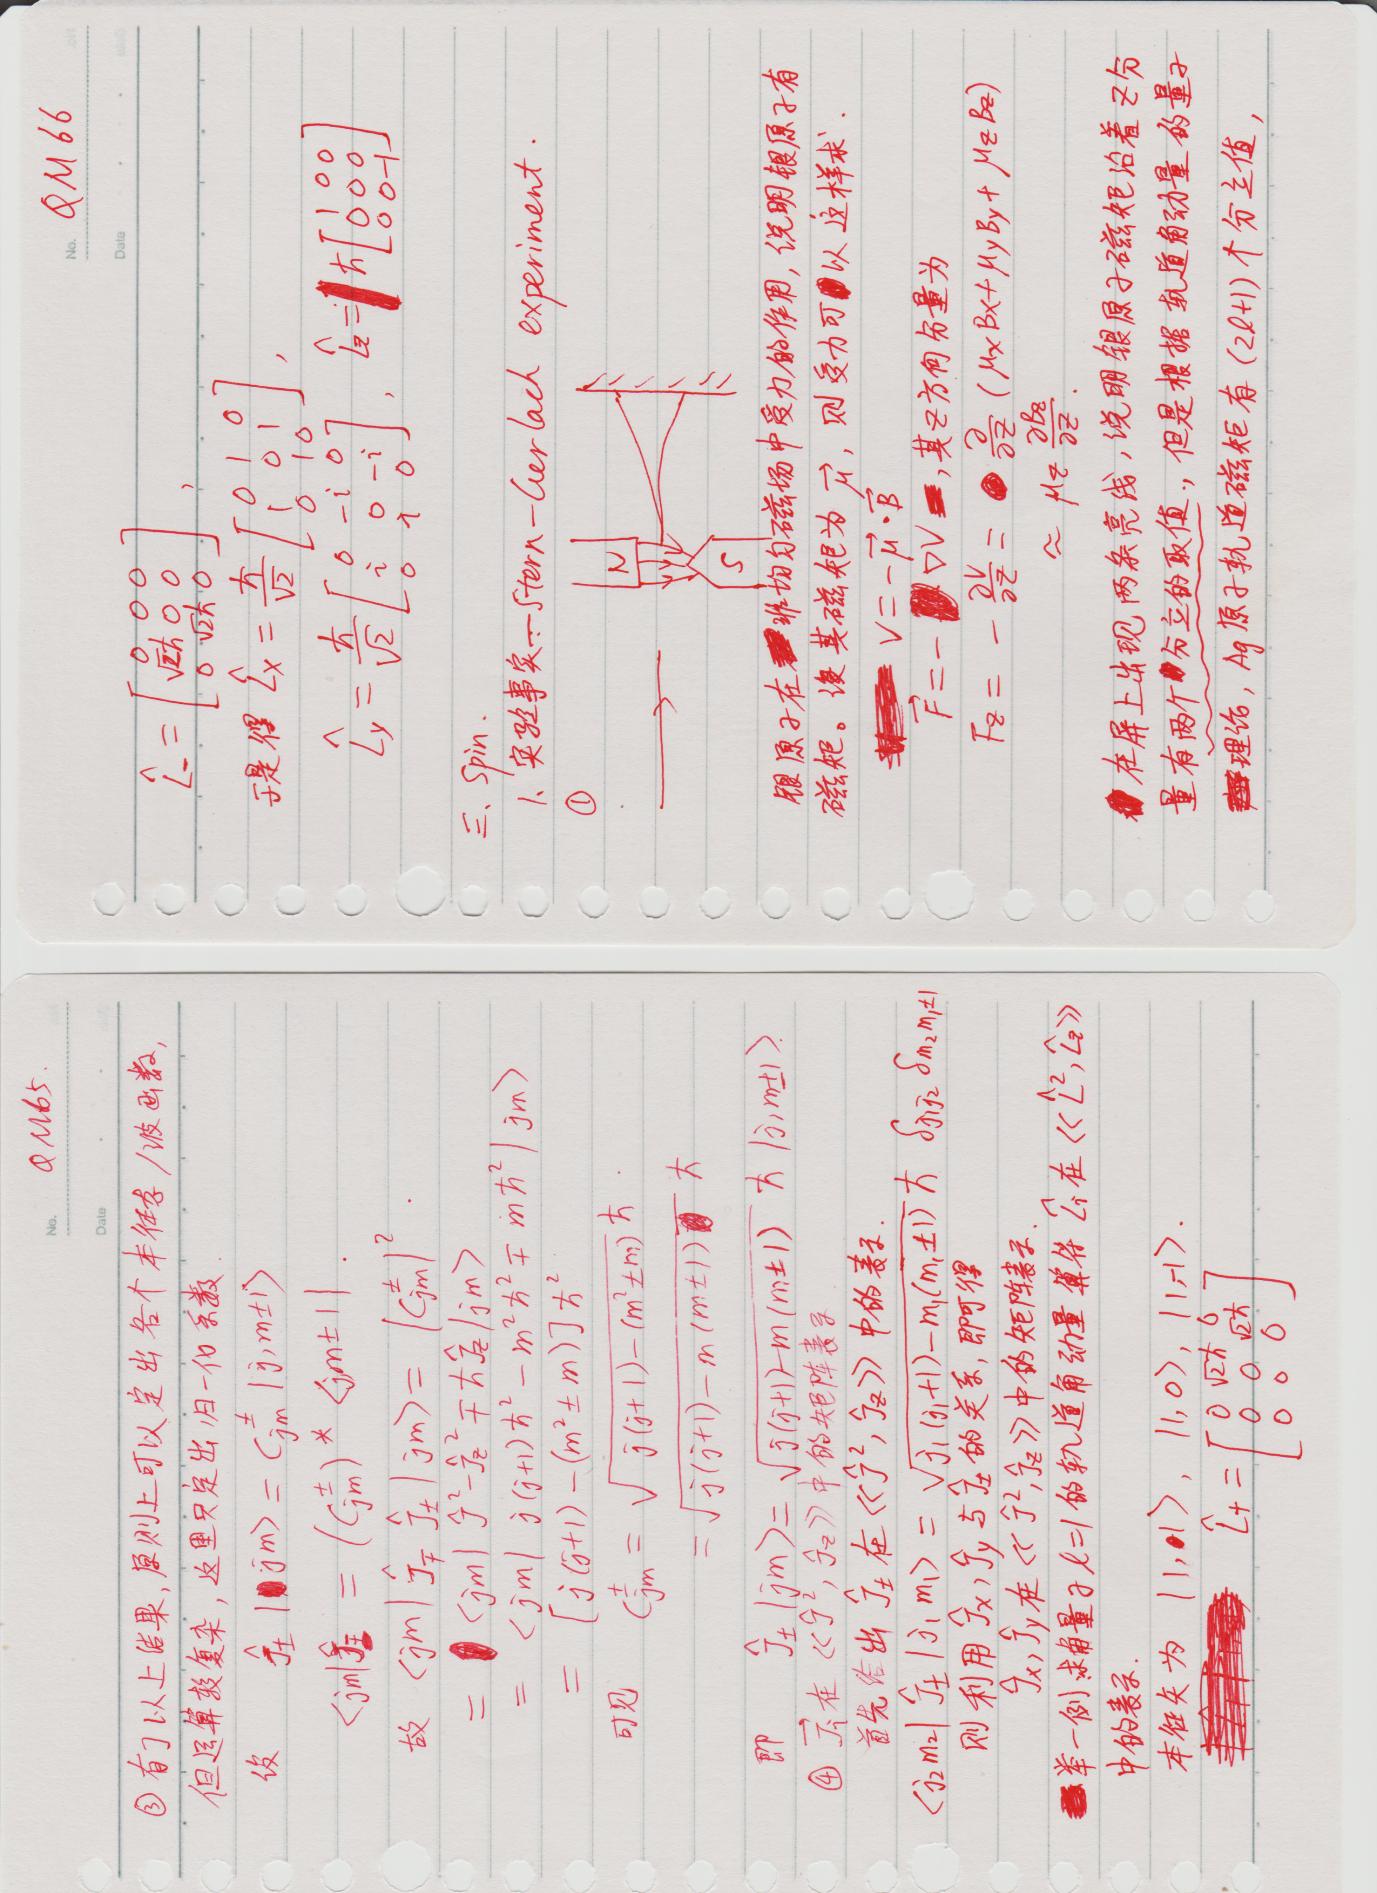 No. QM65.
Date
③有了以上结果,原则上可以定出各个本征态/波函数,
但运算较复杂,这里只定出归一化系数.
设 Ĵ± |jm> = C±jm |j,m±1>
<jm|Ĵ∓ = (C±jm)* <jm±1|.
故 <jm| Ĵ∓ Ĵ± |jm> = |C±jm|².
= <jm| Ĵ²-Ĵz² ∓ ħĴz |jm>
= <jm| j(j+1)ħ² - m²ħ² ∓ mħ² |jm>
= [j(j+1)-(m²±m)]ħ²
可见 C±jm = √(j(j+1)-(m²±m)) ħ.
= √(j(j+1)-m(m±1)) ħ
即 Ĵ± |jm> = √(j(j+1)-m(m±1)) ħ |j,m±1>.
④ J⃗i在《Ĵ², Ĵz》中的矩阵表示
首先给出 Ĵ± 在《Ĵ², Ĵz》中的表示.
<j₂m₂| Ĵ± |j₁m₁> = √(j₁(j₁+1)-m₁(m₁±1)) ħ δj₁j₂ δm₂m₁±1
则利用Ĵx, Ĵy与Ĵ±的关系,即可得
Ĵx, Ĵy在《Ĵ², Ĵz》中的矩阵表示.
举一例求角量子ℓ=1的轨道角动量算符 L̂i 在《L̂², L̂z》
中的表示.
本征矢为 |1,1>, |1,0>, |1,-1>.
L̂+ = [0 √2ħ 0
0 0 √2ħ
0 0 0]
No. QM66
Date
L̂- = [0 0 0
√2ħ 0 0
0 √2ħ 0],
于是得 L̂x = ħ/√2 [0 1 0
1 0 1
0 1 0],
L̂y = ħ/√2 [0 -i 0
i 0 -i
0 i 0], L̂z = ħ [1 0 0
0 0 0
0 0 -1]
三、Spin.
1、实验事实—Stern-Gerlach experiment.
①
N
S
银原子在非均匀磁场中受力的作用,说明银原子有
磁矩。设其磁矩为 μ⃗, 则受力可以这样求.
V = -μ⃗·B⃗
F⃗ = -∇V, 其z方向分量为
Fz = -∂V/∂z = ∂/∂z (μxBx+μyBy+μzBz)
≈ μz ∂Bz/∂z.
在屏上出现两条亮线,说明银原子磁矩沿着z分
量有两个分立的取值., 但是根据轨道角动量的量子
理论, Ag原子轨道磁矩有(2ℓ+1)个分立值,